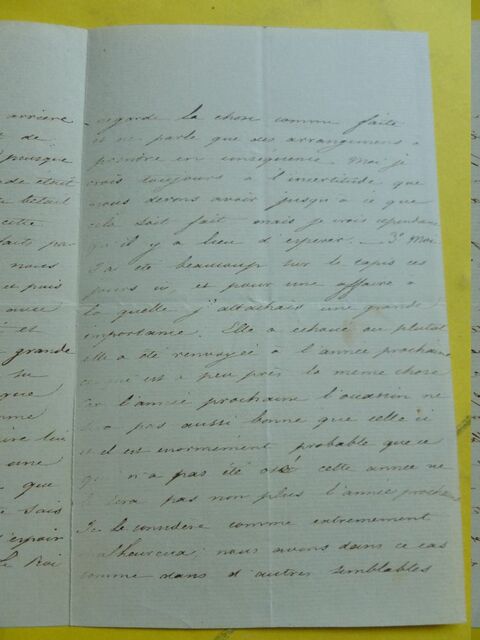 arrière
de
puisque
était
détail
cette
fait par
nous
puis
avec
et
grande
su
que
me
lui
une
que
sais
espoir
le Roi
regarde la chose comme faite
et ne parle que des arrangemens à
prendre en conséquence. Moi je
crois toujours à l'incertitude que
nous devons avoir jusqu'à ce que
cela soit fait mais je crois cependant
qu'il y a lieu d'espérer. 3°
J'ai été beaucoup sur le tapis ces
jours ci, et pour une affaire à
la quelle j'attachais une grande
importance. Elle a échoué ou plutot
elle a été renvoyée à l'année prochaine
ce qui est à peu près la même chose
car l'année prochaine l'occasion ne
sera pas aussi bonne que celle ci
et il est énormément probable que ce
qui n'a pas été osé cette année ne
le sera pas non plus l'année prochaine
Je le considère comme extrêmement
malheureux : nous avons dans ce cas
comme dans d'autres semblables